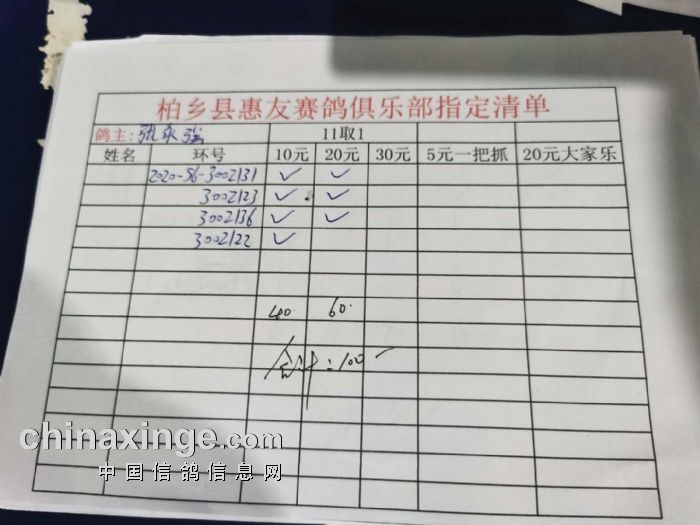 柏乡县惠友赛鸽俱乐部指定清单
鸽主: 张永强 11取1
姓名 环号 10元 20元 30元 5元一把抓 20元大家乐
2020-86-3002131 ✓ ✓
3002123 ✓ ✓
3002136 ✓ ✓
3002122 ✓
40. 60.
合计: 100 -
chinaxinge.com
中国信鸽信息网